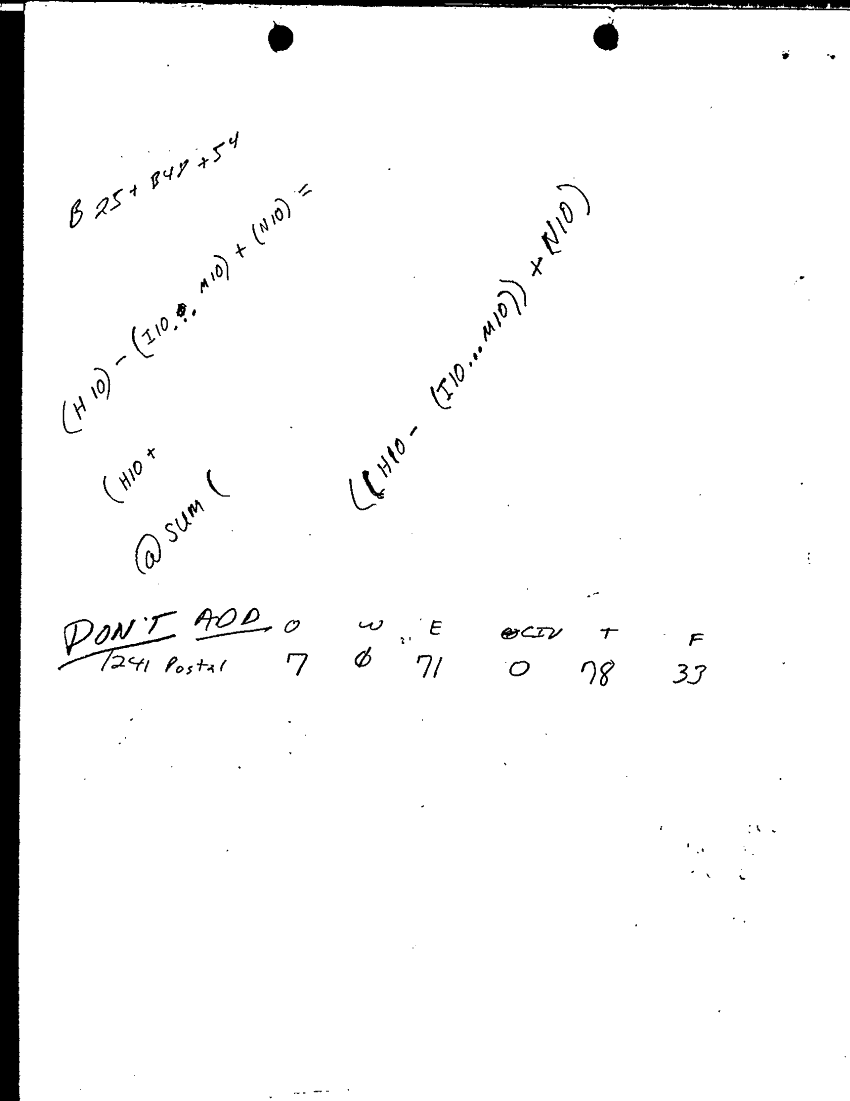 B 25 + B48 + 54
(H 10) - (I10... M10) + (N10) =
((H10 - (I10...M10)) + (N10)
(H10 +
@ SUM (
DON'T ADD O W E CIV T F
1241 Postal 7 Ø 71 0 78 33